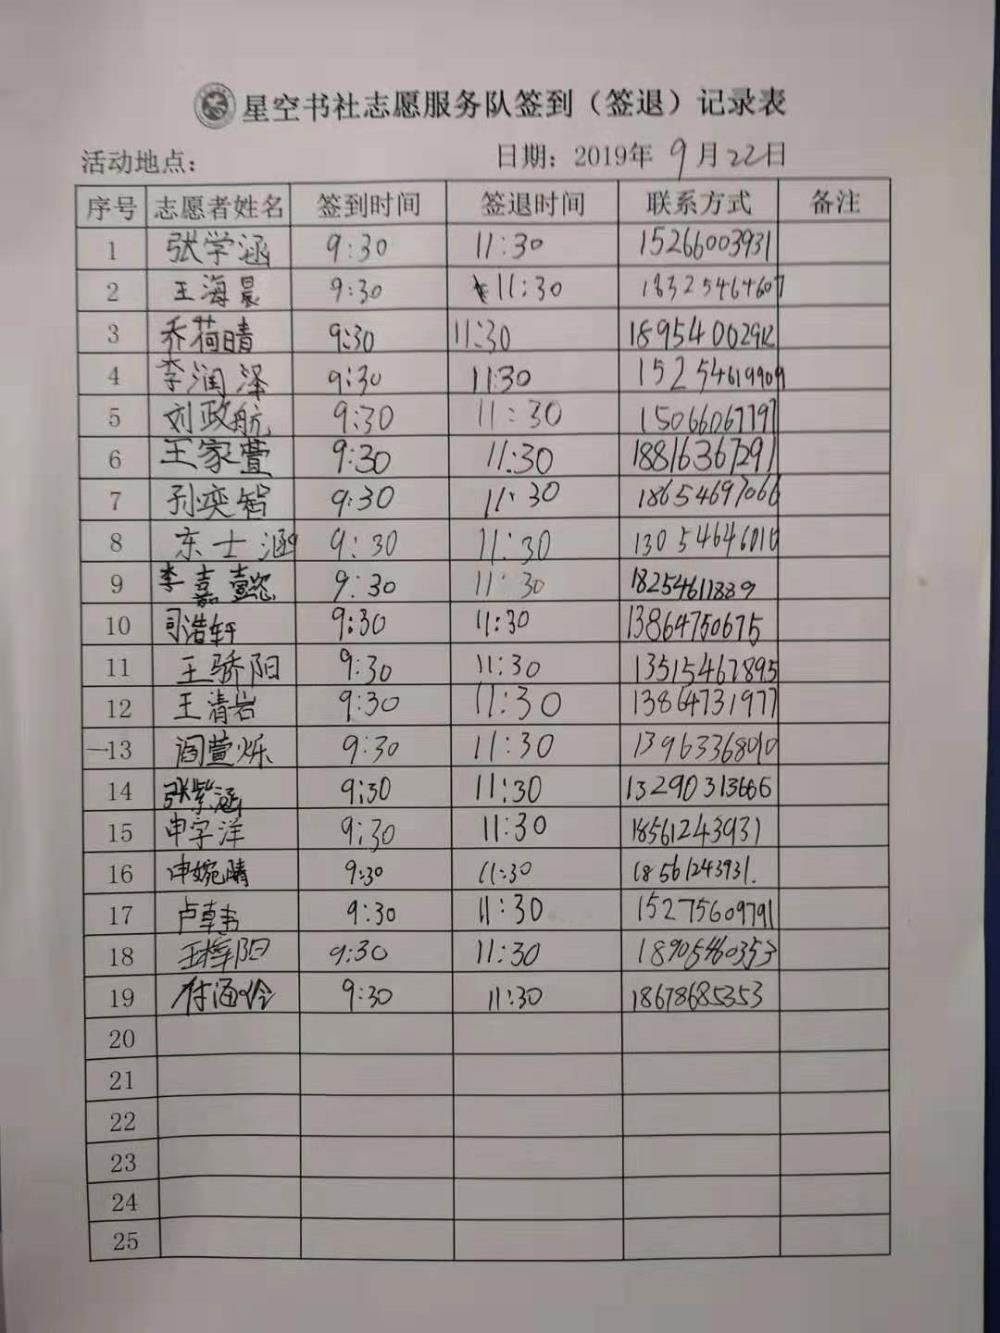 星空书社志愿服务队签到（签退）记录表
活动地点： 日期：2019年 9月22日
序号 志愿者姓名 签到时间 签退时间 联系方式 备注
1 张学涵 9:30 11:30 15266003931
2 王海晨 9:30 11:30 18325464607
3 乔荷晴 9:30 11:30
4 李润泽 9:30 11:30 15254619909
5 刘政航 9:30 11:30 15066067797
6 王家萱 9:30 11:30 18816367291
7 孙奕智 9:30 11:30 18654697066
8 东士涵 9:30 11:30
9 李嘉懿 9:30 11:30 18254611889
10 司浩轩 9:30 11:30 13864750675
11 王骄阳 9:30 11:30 13515467895
12 王清岩 9:30 11:30 13864731977
13 阎萱烁 9:30 11:30 13963368010
14 张紫涵 9:30 11:30 13290313666
15 申宇洋 9:30 11:30 18561243931
16 申婉晴 9:30 11:30 18561243931.
17 卢卓韦 9:30 11:30 15275609791
18 9:30 11:30 18905460353
19 9:30 11:30 18678685353
20
21
22
23
24
25